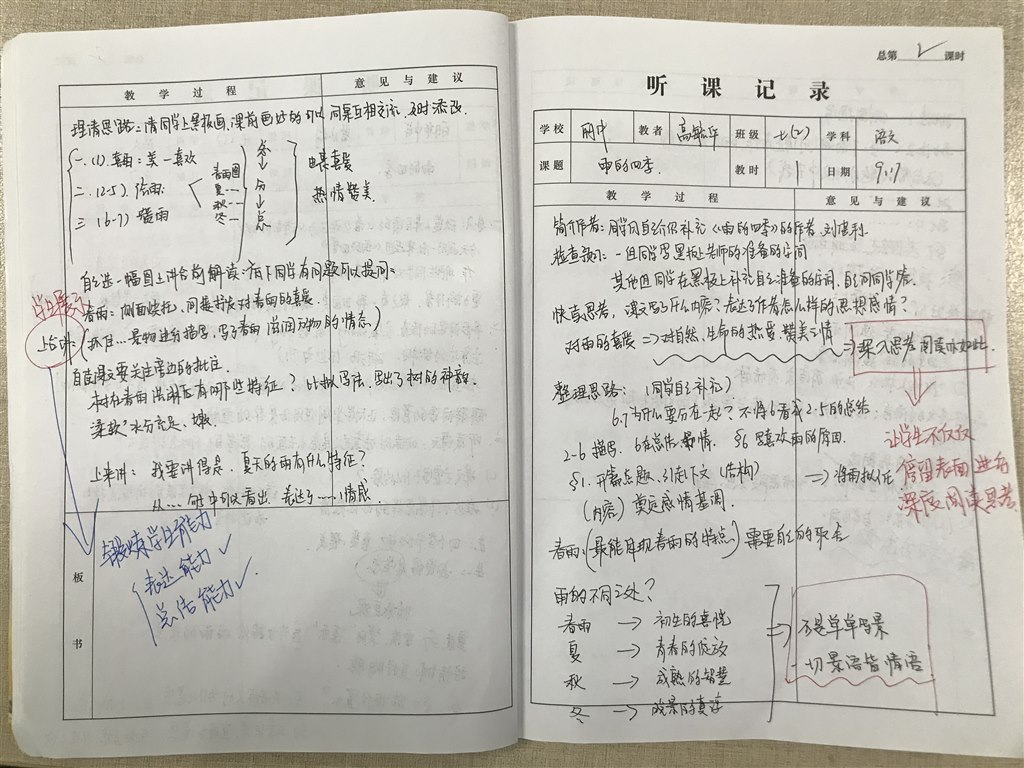 教 学 过 程
意 见 与 建 议
理清思路：请同学上黑板画，课前画好的可以同桌互相交流，及时添改。
一.(1).喜雨：美—喜欢
二.(2-5).绘雨：
春雨图
夏…
秋…
冬…
三.(6-7)
总
↓
分
↓
总
喜爱
热情赞美
自己选一幅图上讲台前解读：底下同学有问题可以提问。
学生展示
春雨：侧面烘托，间接抒发对春雨的喜爱。
上台讲
(抓住…景物进行描写，写了春雨滋润动物的情态)
自读课文要关注旁边的批注。
树在春雨滋润后有哪些特征？比拟写法，写出了树的神韵。
“柔软”水分充足、嫩
上来讲：我要讲得是，夏天的雨有什么特征？
从……句中可以看出，表达了……情感。
锻炼学生能力
表达能力✓
总结能力✓
板
书
总第 2 课时
听 课 记 录
学校
教者
高敏华
班级
七(2)
学科
语文
课题
雨的四季
教时
日期
9.17
教 学 过 程
意 见 与 建 议
简介作者：同学间自介但补充《雨的四季》的作者 刘湛秋。
检查预习：一组同学写黑板老师的准备的字词
其他组同学在黑板上补充自己准备的字词.
快速思考，课文写了什么内容？表达了作者怎么样的思想感情？
对雨的喜爱 ⇒对自然、生命的热爱、赞美之情 ⇒深入思考
整理思路：(同学自己补充)
6.7为什么要分在一起？不将6看成2-5的总结
2-6描写 6在总结 抒情. §6更喜欢雨的原因.
让学生不仅仅
停留表面 进行
深度阅读思考
§1.开篇点题、引起下文(结构)
(内容)奠定感情基调.
春雨：(最能体现春雨的特点) 需要自己的
雨的不同之处？
春雨 → 初生的喜悦
夏 → 青春的绽放
秋 → 成熟的智慧
冬 →
⇒
不是单单写景
一切景语皆情语